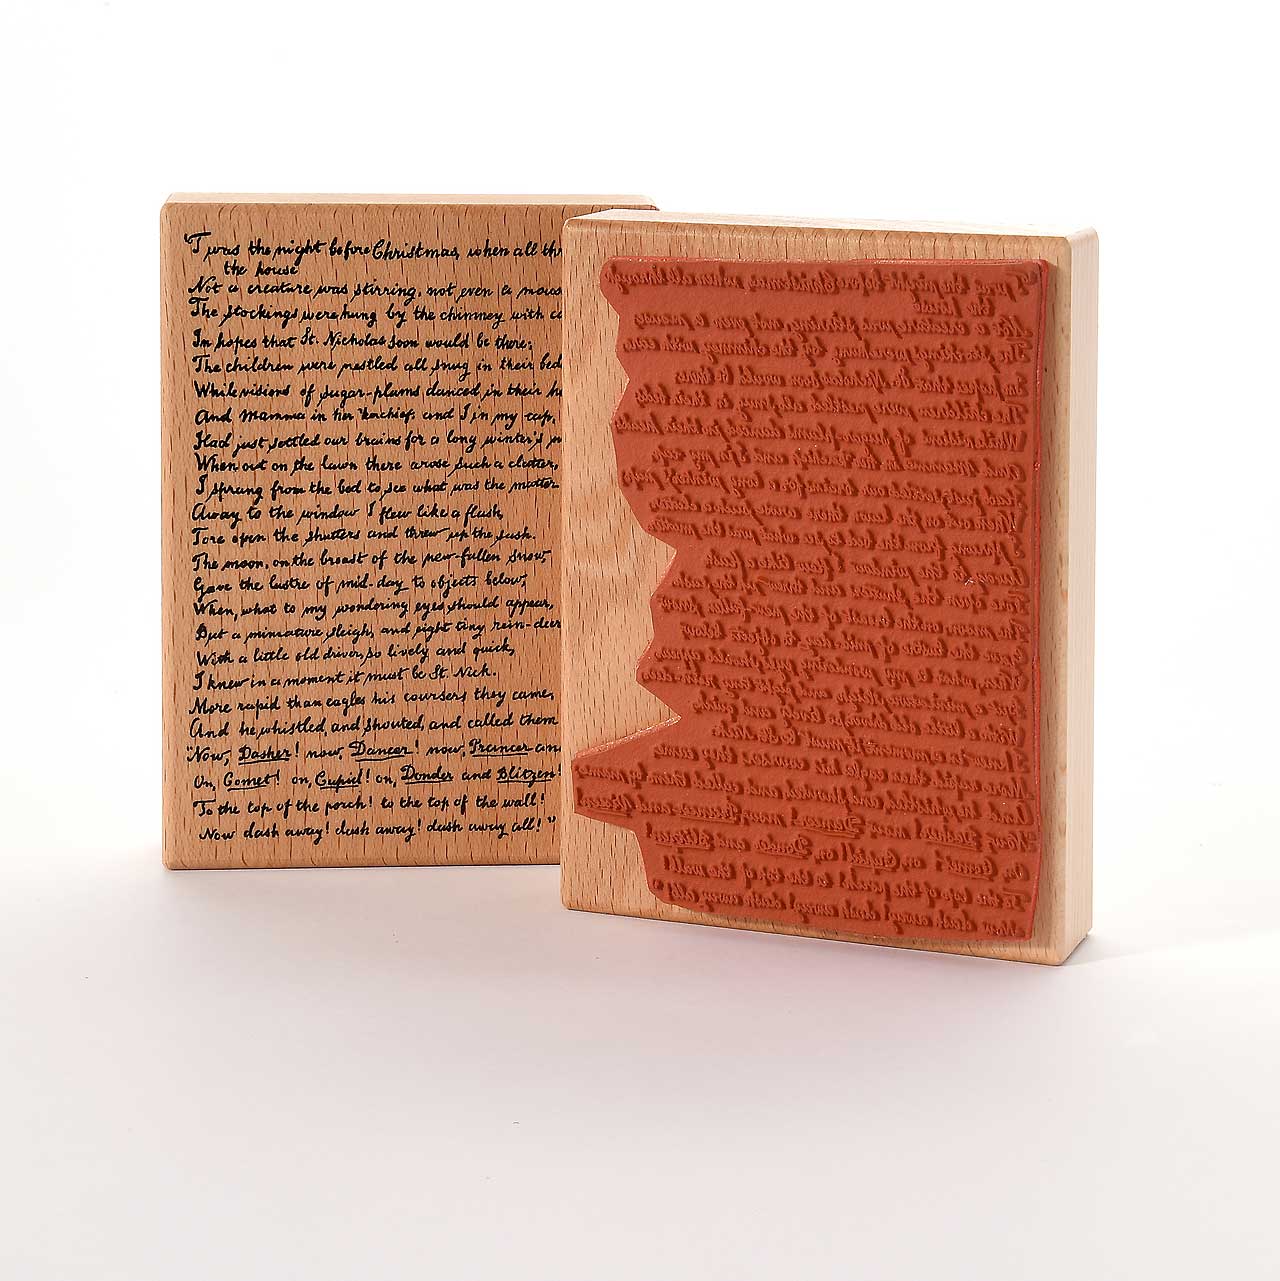 'Twas the night before Christmas, when all thr
the house
Not a creature was stirring, not even a mous
The stockings were hung by the chimney with ca
In hopes that St. Nicholas soon would be there;
The children were nestled all snug in their bed
While visions of sugar-plums danced in their he
And Mamma in her 'kerchief, and I in my cap,
Had just settled our brains for a long winter's n
When out on the lawn there arose such a clatter,
I sprang from the bed to see what was the matter
Away to the window I flew like a flash,
Tore open the shutters and threw up the sash.
The moon, on the breast of the new-fallen snow,
Gave the lustre of mid-day to objects below;
When, what to my wondering eyes should appear,
But a miniature sleigh, and eight tiny rein-deer
With a little old driver, so lively and quick,
I knew in a moment it must be St. Nick.
More rapid than eagles his coursers they came,
And he whistled, and shouted, and called them
"Now, Dasher! now, Dancer! now, Prancer and
On, Comet! on, Cupid! on, Donder and Blitzen!
To the top of the porch! to the top of the wall!
Now dash away! dash away! dash away all!"